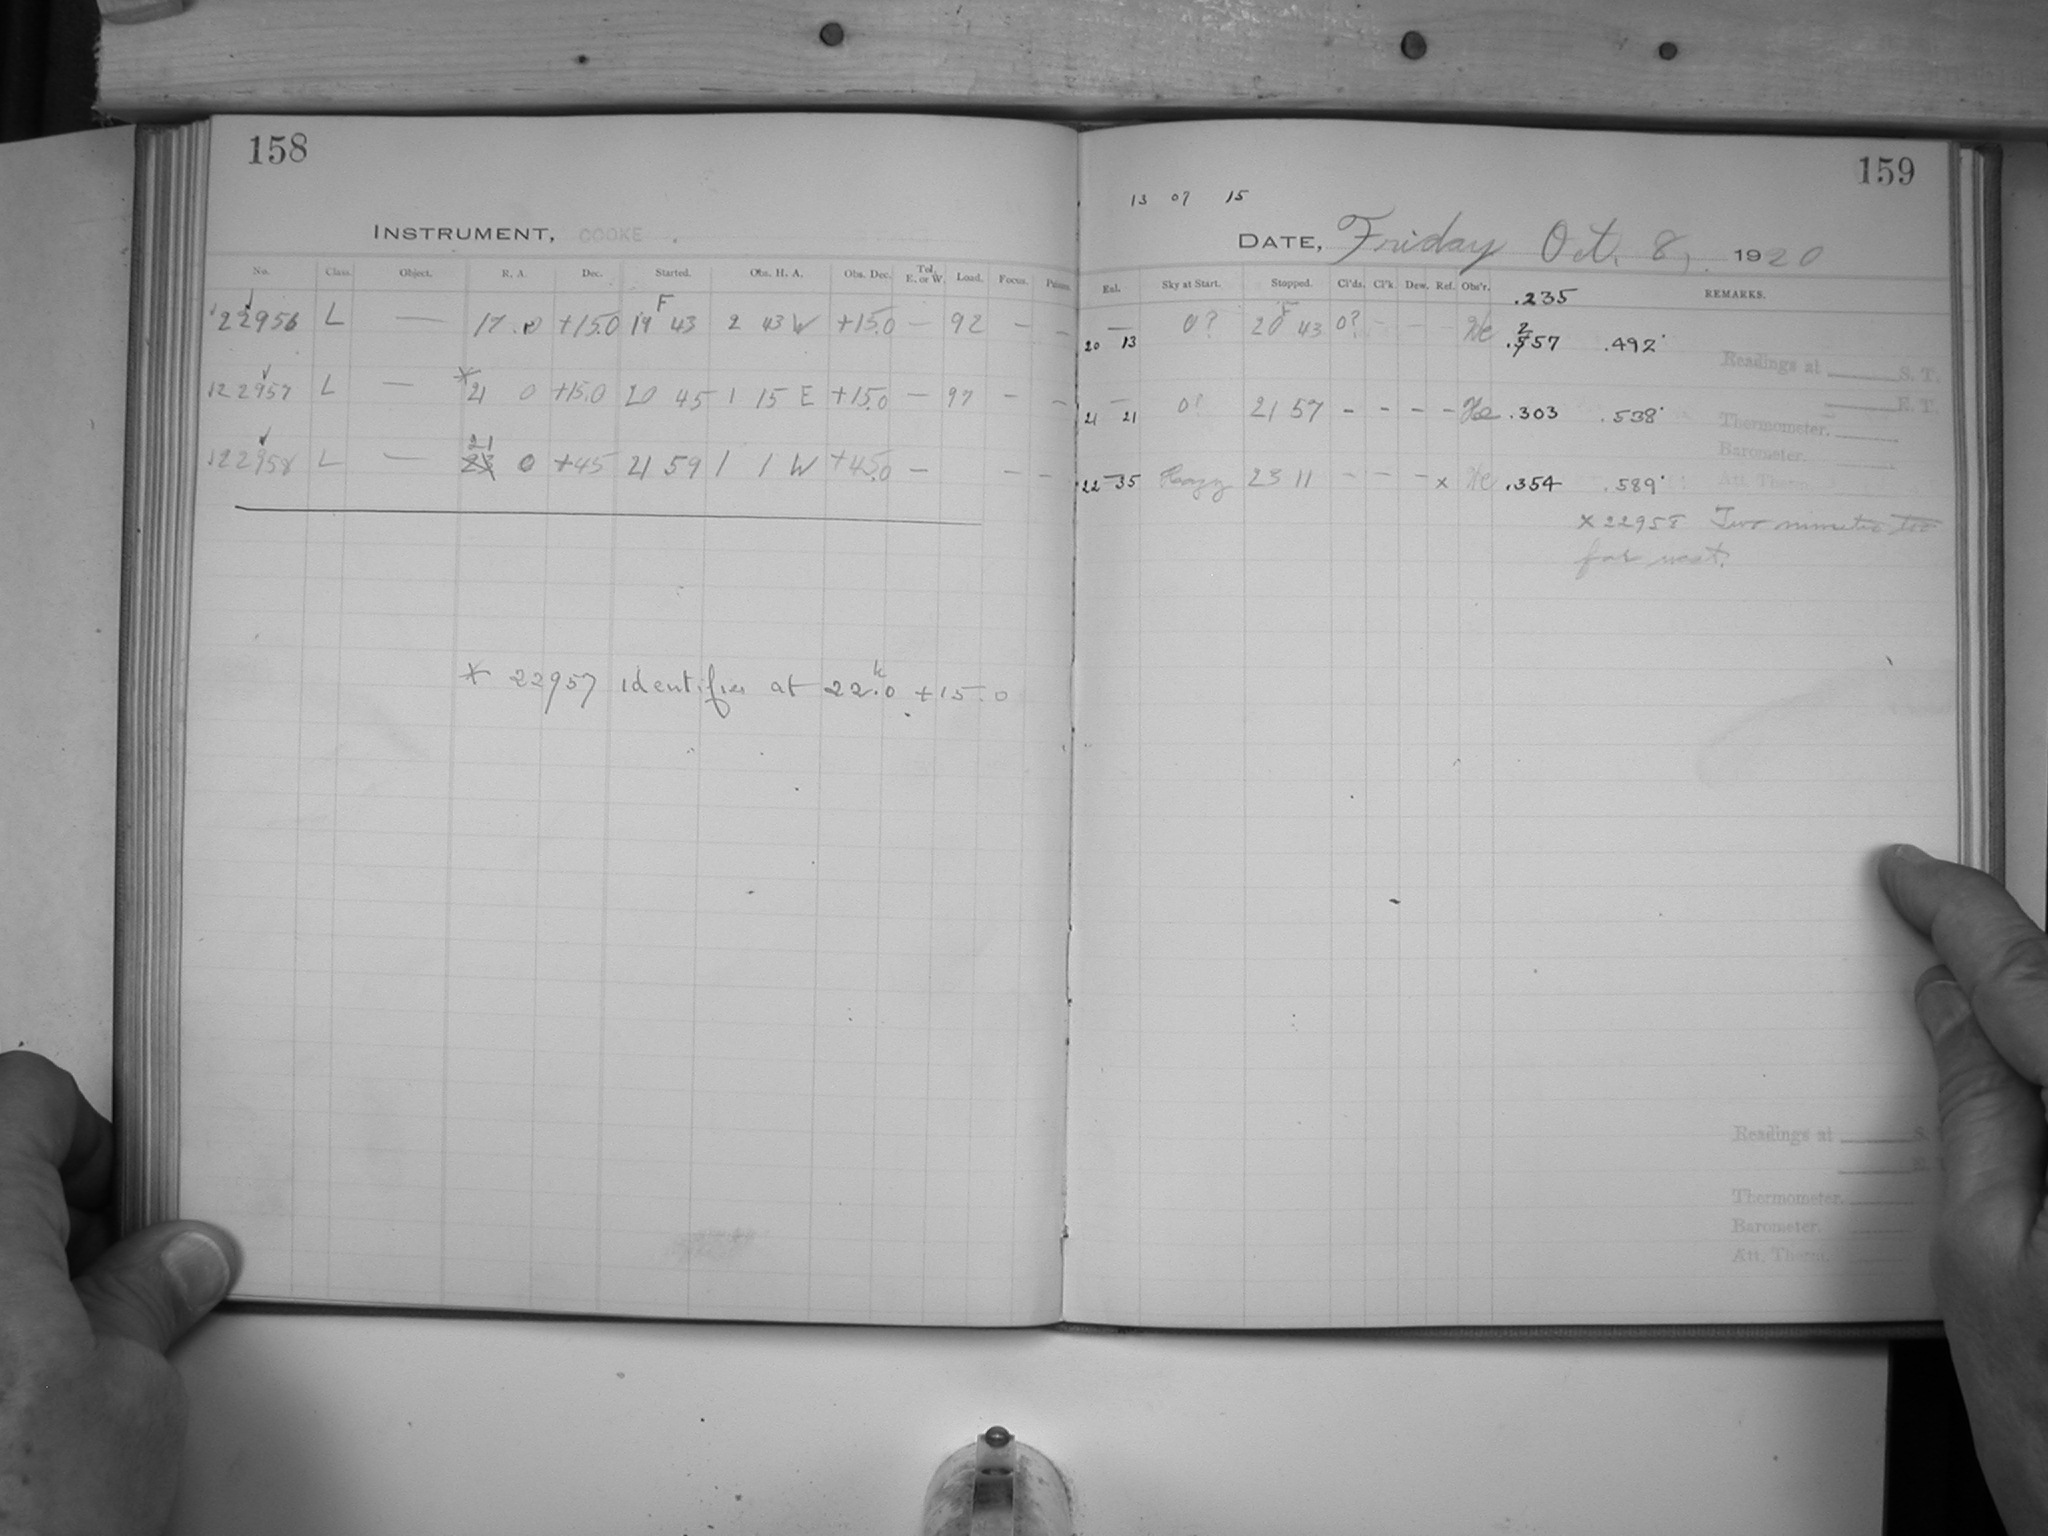 158
INSTRUMENT, COOKE
No. Class. Object. R. A. Dec. Started. Obs. H. A. Obs. Dec. Tel. E. or W. Load. Focus.
22956 L — 17 .0 +15.0 19 F 43 2 43 W +15.0 — 92 — —
22957 L — * 21 0 +15.0 20 45 1 15 E +15.0 — 97 — —
21
22958 L — 23 0 +45 21 59 1 1 W +45.0 — — —
* 22957 identifies at 22.h0 +15.0
159
13 07 15
DATE, Friday Oct. 8, 1920
Sky at Start. Stopped. Cl'ds. Cl'k. Dew. Ref. Obs'r. REMARKS.
.235
20 13 0? 20 F 43 0? - - - He .257 .492
Readings at S. T.
E. T.
21 21 0? 21 57 - - - - He .303 .538
Thermometer.
Barometer.
22 35 Hazy 23 11 - - - x He .354 .589
Att. Therm.
x 22958 Two minutes too
far west.
Readings at S.
Thermometer.
Barometer.
Att. Therm.